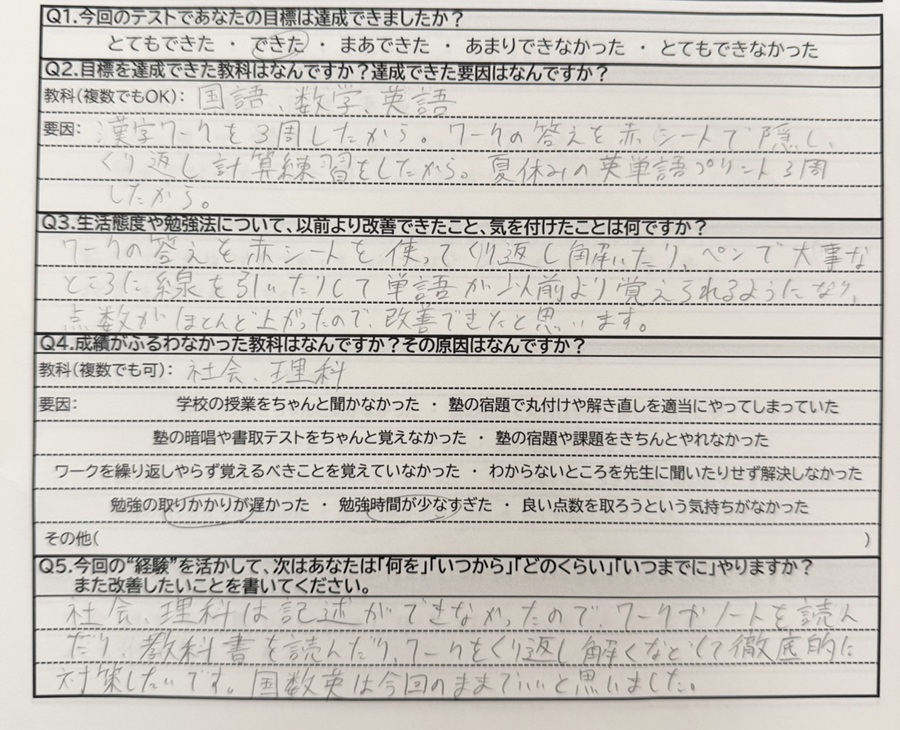 Q1.今回のテストであなたの目標は達成できましたか？
とてもできた ・ できた ・ まあできた ・ あまりできなかった ・ とてもできなかった
Q2.目標を達成できた教科はなんですか？達成できた要因はなんですか？
教科(複数でもOK)： 国語、数学、英語
要因： 漢字ワークを3周したから。ワークの答えを赤シートで隠し、
くり返し計算練習をしたから。夏休みの英単語プリント3周
したから。
Q3.生活態度や勉強法について、以前より改善できたこと、気を付けたことは何ですか？
ワークの答えを赤シートを使ってくり返し解いたり、ペンで大事な
ところに線を引いたりして単語が以前より覚えられるようになり、
点数がほとんど上がったので、改善できたと思います。
Q4.成績がふるわなかった教科はなんですか？その原因はなんですか？
教科(複数でも可)： 社会、理科
要因： 学校の授業をちゃんと聞かなかった ・ 塾の宿題で丸付けや解き直しを適当にやってしまっていた
塾の暗唱や書取テストをちゃんと覚えなかった ・ 塾の宿題や課題をきちんとやれなかった
ワークを繰り返しやらず覚えるべきことを覚えていなかった ・ わからないところを先生に聞いたりせず解決しなかった
勉強の取りかかりが遅かった ・ 勉強時間が少なすぎた ・ 良い点数を取ろうという気持ちがなかった
その他( )
Q5.今回の“経験”を活かして、次はあなたは「何を」「いつから」「どのくらい」「いつまでに」やりますか？
また改善したいことを書いてください。
社会、理科は記述ができなかったので、ワークやノートを読ん
だり、教科書を読んだり、ワークをくり返し解くなどして徹底的に
対策したいです。国数英は今回のままでいいと思いました。